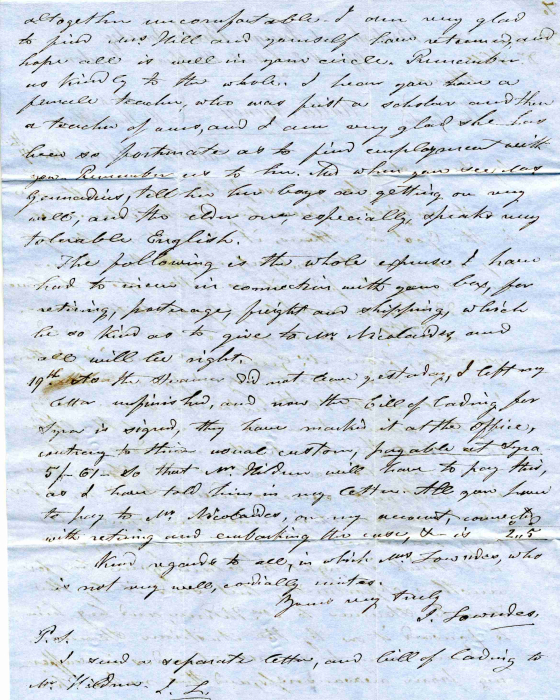 altogether uncomfortable. I am very glad
to find Mrs Hill and yourself have returned, and
hope all is well in your circle. Remember
us kindly to the whole. I hear you have a
female teacher, who was first a scholar and then
a teacher of ours, and I am very glad she has
been so fortunate as to find employment with
you. Remember us to her. And when you see Mrs
Gennadius, tell her her boys are getting on very
well, and the elder one, especially, speaks very
tolerable English.
The following is the whole expense I have
had to incur in connection with your box, for
retiring, porterage, freight and shipping, which
be so kind as to give to Mr. Nicolaides, and
all will be right.
19th As the Steamer did not leave yesterday, I left my
letter unfinished, and now the bill of lading for
Syra is signed, they have marked it at the office,
contrary to their usual custom, payable at Syra
5/- 6/- so that Mr Hildner will have to pay this,
as I have told him in my letter. All you have
to pay to Mr. Nicolaides, on my account, connected
with retiring and embarking the case, &c is 2,,5
Kind regards to all, in which Mrs Lowndes, who
is not very well, cordially unites.
Yours very truly
I. Lowndes.
P.S.
I send a separate letter, and bill of lading to
Mr Hildner. I. L.